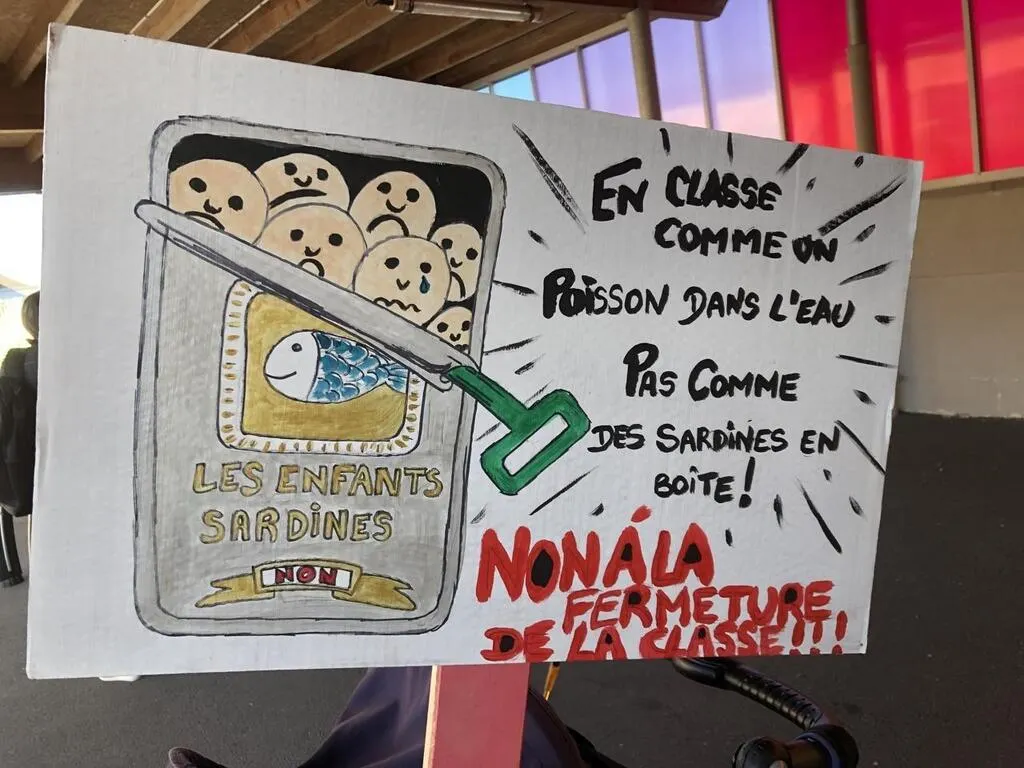 LES ENFANTS
SARDINES
NON
EN CLASSE
COMME UN
POISSON DANS L'EAU
PAS COMME
DES SARDINES EN
BOÎTE!
NON Á LA
FERMETURE
DE LA CLASSE!!!